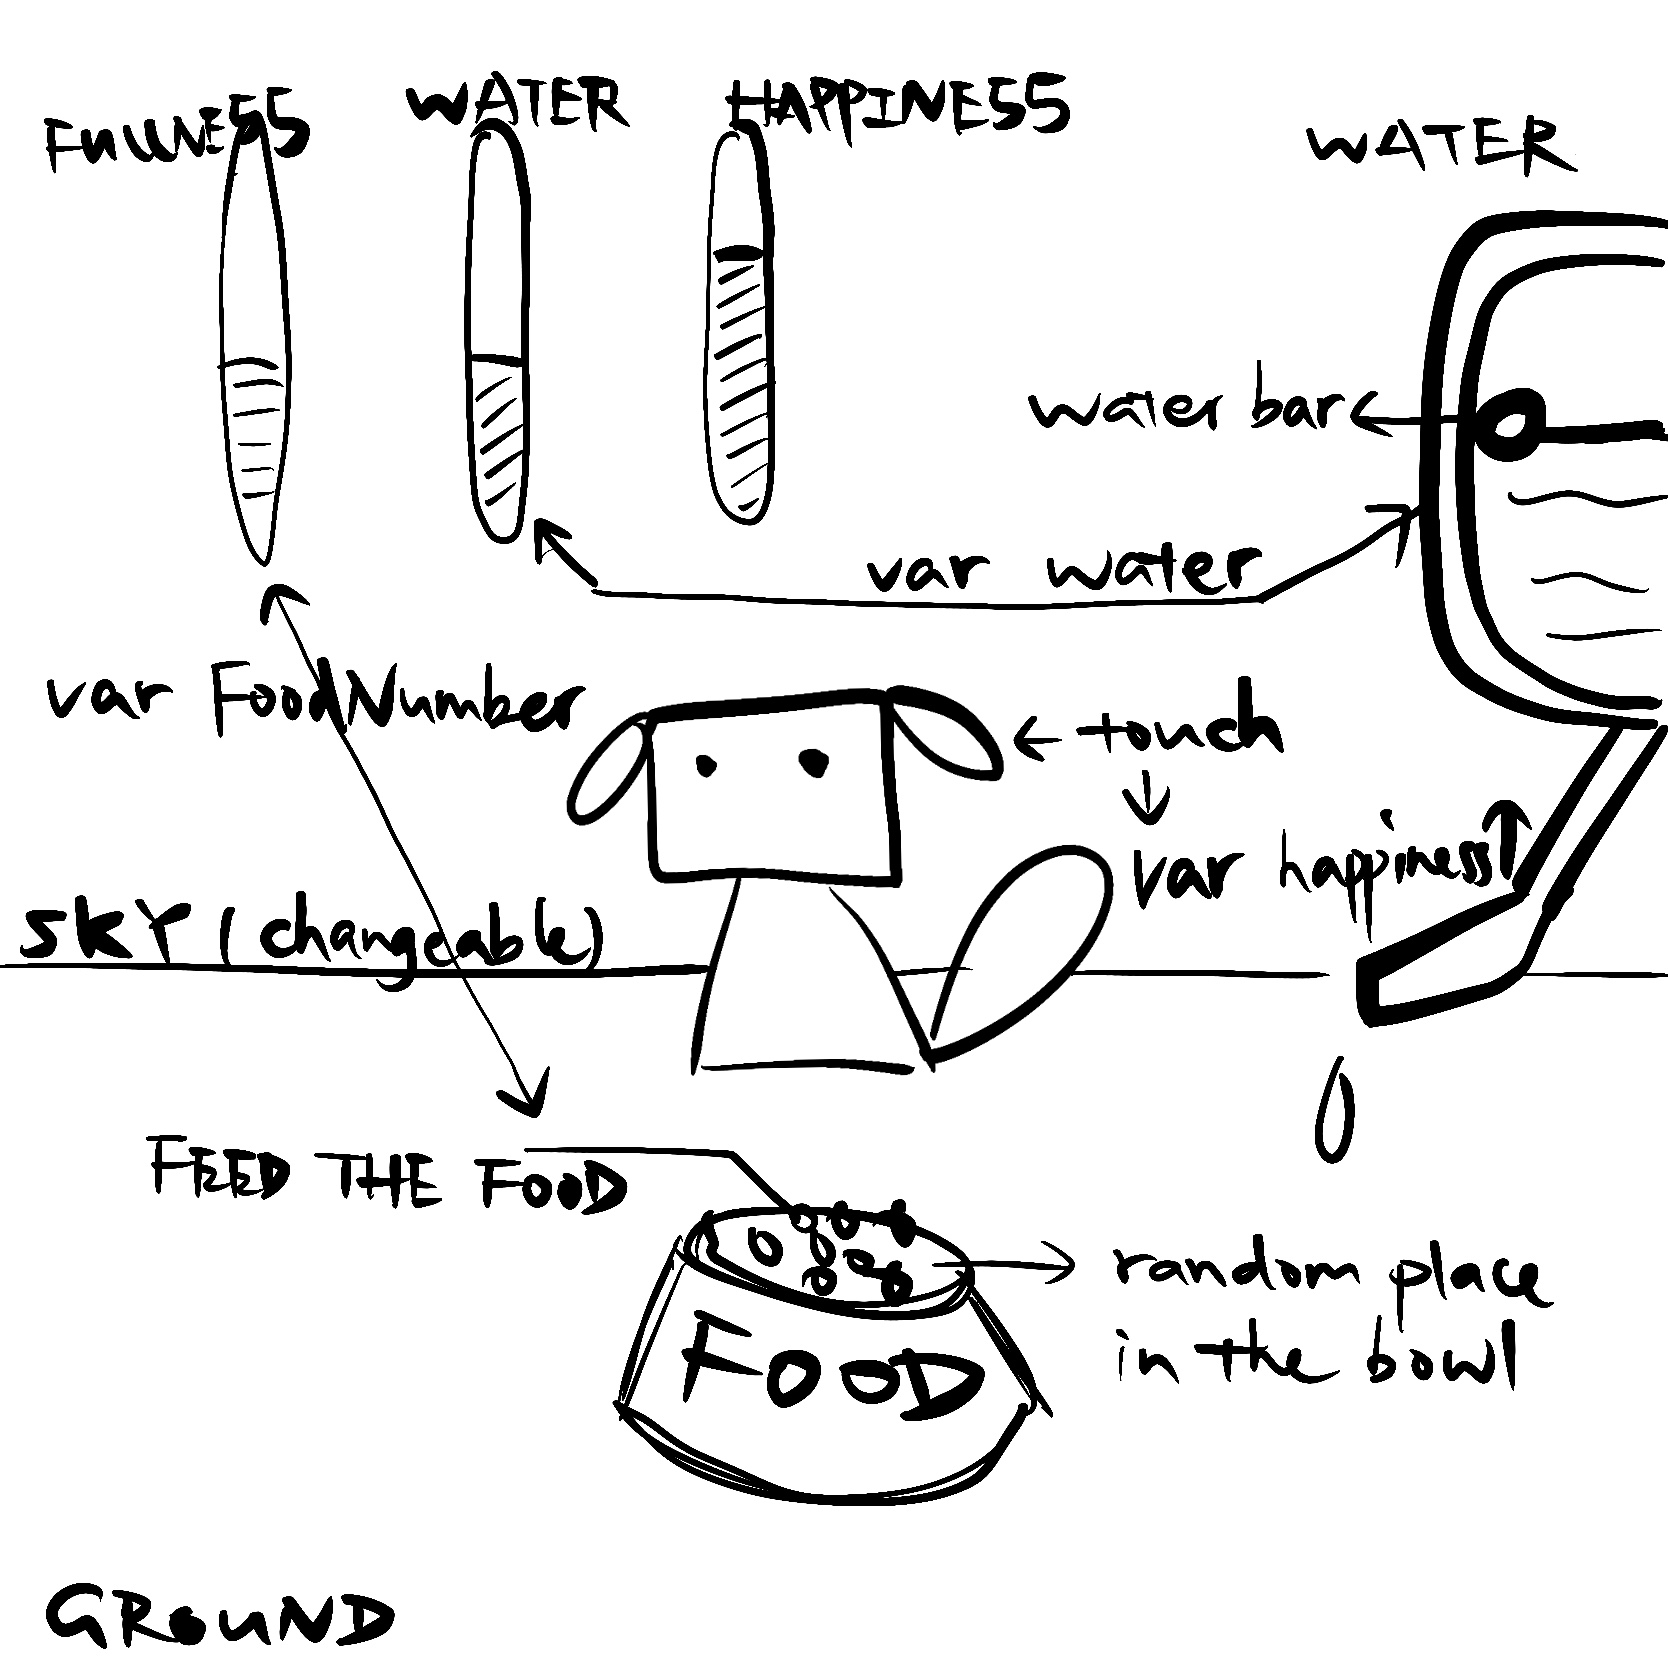 FullNESS
WATER
HAPPINESS
WATER
water bar
var water
var FoodNumber
touch
var happiness
SKY (changeable)
FEED THE FOOD
random place
in the bowl
FOOD
GROUND